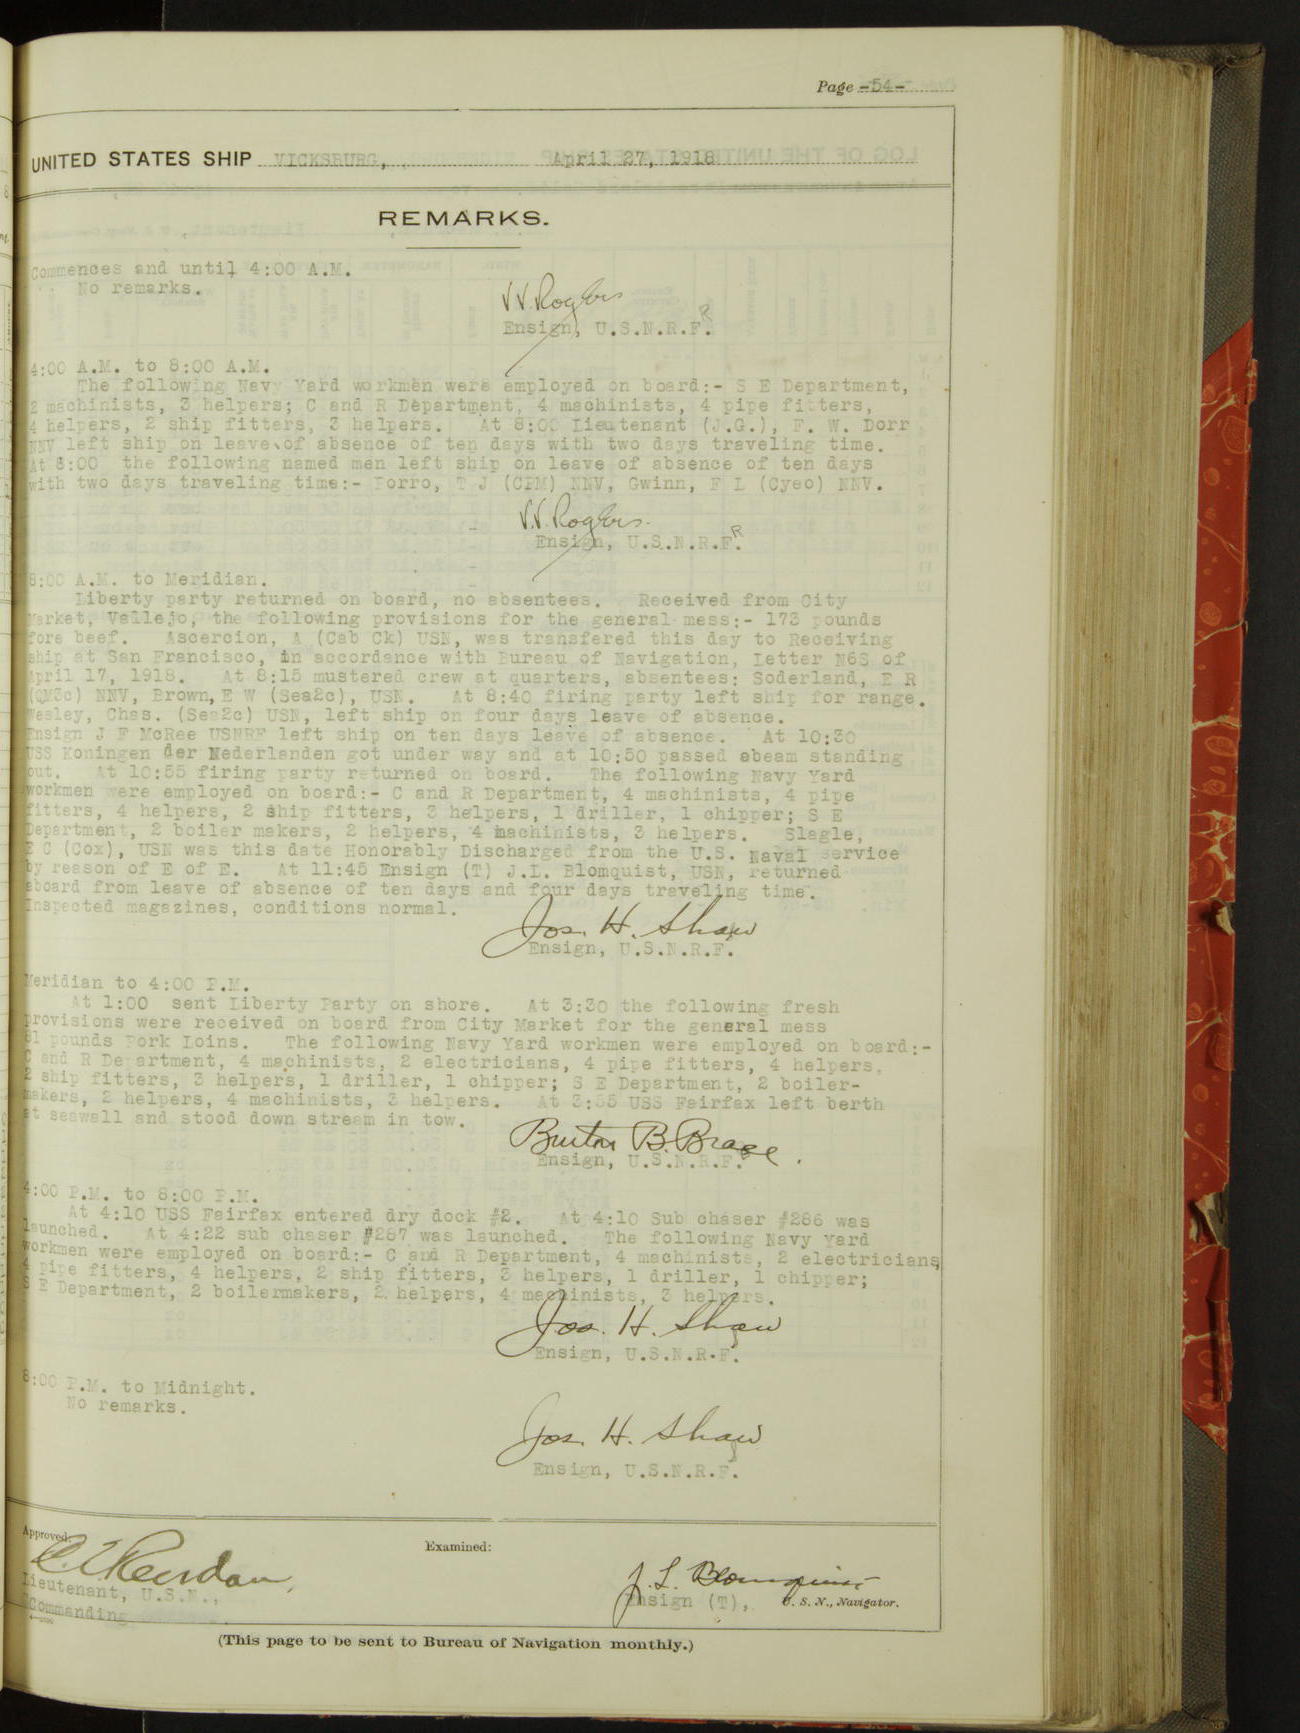 Page -54-
UNITED STATES SHIP VICKSBURG, April 27, 1918
REMARKS.
Commences and until 4:00 A.M.
No remarks.
V.V. Rogers
Ensign, U.S.N.R.F.
R
4:00 A.M. to 8:00 A.M.
The following Navy Yard workmen were employed on board:- S E Department,
2 machinists, 3 helpers; C and R Department, 4 machinists, 4 pipe fitters,
4 helpers, 2 ship fitters, 3 helpers. At 8:00 Lieutenant (J.G.), F. W. Dorr
NNV left ship on leave of absence of ten days with two days traveling time.
At 8:00 the following named men left ship on leave of absence of ten days
with two days traveling time:- Porro, T J (CPM) NNV, Gwinn, F L (Cyeo) NNV.
V.V. Rogers.
Ensign, U.S.N.R.F.
R
8:00 A.M. to Meridian.
Liberty party returned on board, no absentees. Received from City
Market, Vallejo, the following provisions for the general mess:- 173 pounds
fore beef. Ascercion, A (Cab Ck) USN, was transfered this day to Receiving
ship at San Francisco, in accordance with Bureau of Navigation, Letter N6S of
April 17, 1918. At 8:15 mustered crew at quarters, absentees: Soderland, E R
(QM3c) NNV, Brown, E W (Sea2c), USN. At 8:40 firing party left ship for range.
Wesley, Chas. (Sea2c) USN, left ship on four days leave of absence.
Ensign J F McRee USNRF left ship on ten days leave of absence. At 10:30
USS Koningen der Nederlanden got under way and at 10:50 passed abeam standing
out. At 10:55 firing party returned on board. The following Navy Yard
workmen were employed on board:- C and R Department, 4 machinists, 4 pipe
fitters, 4 helpers, 2 ship fitters, 3 helpers, 1 driller, 1 chipper; S E
Department, 2 boiler makers, 2 helpers, 4 machinists, 3 helpers. Slagle,
E C (Cox), USN was this date Honorably Discharged from the U.S. Naval service
by reason of E of E. At 11:45 Ensign (T) J.L. Blomquist, USN, returned
aboard from leave of absence of ten days and four days traveling time.
Inspected magazines, conditions normal.
Jos. H. Shaw
Ensign, U.S.N.R.F.
Meridian to 4:00 P.M.
At 1:00 sent Liberty Party on shore. At 3:30 the following fresh
provisions were received on board from City Market for the general mess
81 pounds Pork Loins. The following Navy Yard workmen were employed on board:-
C and R Department, 4 machinists, 2 electricians, 4 pipe fitters, 4 helpers,
2 ship fitters, 3 helpers, 1 driller, 1 chipper; S E Department, 2 boiler-
makers, 2 helpers, 4 machinists, 3 helpers. At 3:55 USS Fairfax left berth
at seawall and stood down stream in tow.
Burton B. Brace
Ensign, U.S.N.R.F.
4:00 P.M. to 8:00 P.M.
At 4:10 USS Fairfax entered dry dock #2. At 4:10 Sub chaser #286 was
launched. At 4:22 sub chaser #287 was launched. The following Navy Yard
workmen were employed on board:- C and R Department, 4 machinists, 2 electricians,
4 pipe fitters, 4 helpers, 2 ship fitters, 3 helpers, 1 driller, 1 chipper;
S E Department, 2 boilermakers, 2 helpers, 4 machinists, 3 helpers.
Jos. H. Shaw
Ensign, U.S.N.R.F.
8:00 P.M. to Midnight.
No remarks.
Jos. H. Shaw
Ensign, U.S.N.R.F.
Approved:
Examined:
J. L. Blomquist
Lieutenant, U.S.N.,
Commanding
Ensign (T), U. S. N., Navigator.
(This page to be sent to Bureau of Navigation monthly.)